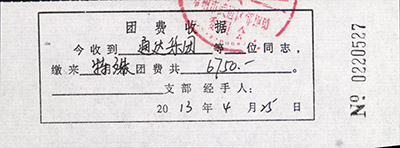 团费收据
今收到 通达集团 等 位同志，
缴来 特殊 团费共 6750.— 。
支部 经手人：
2013年4月25日
№ 0220527